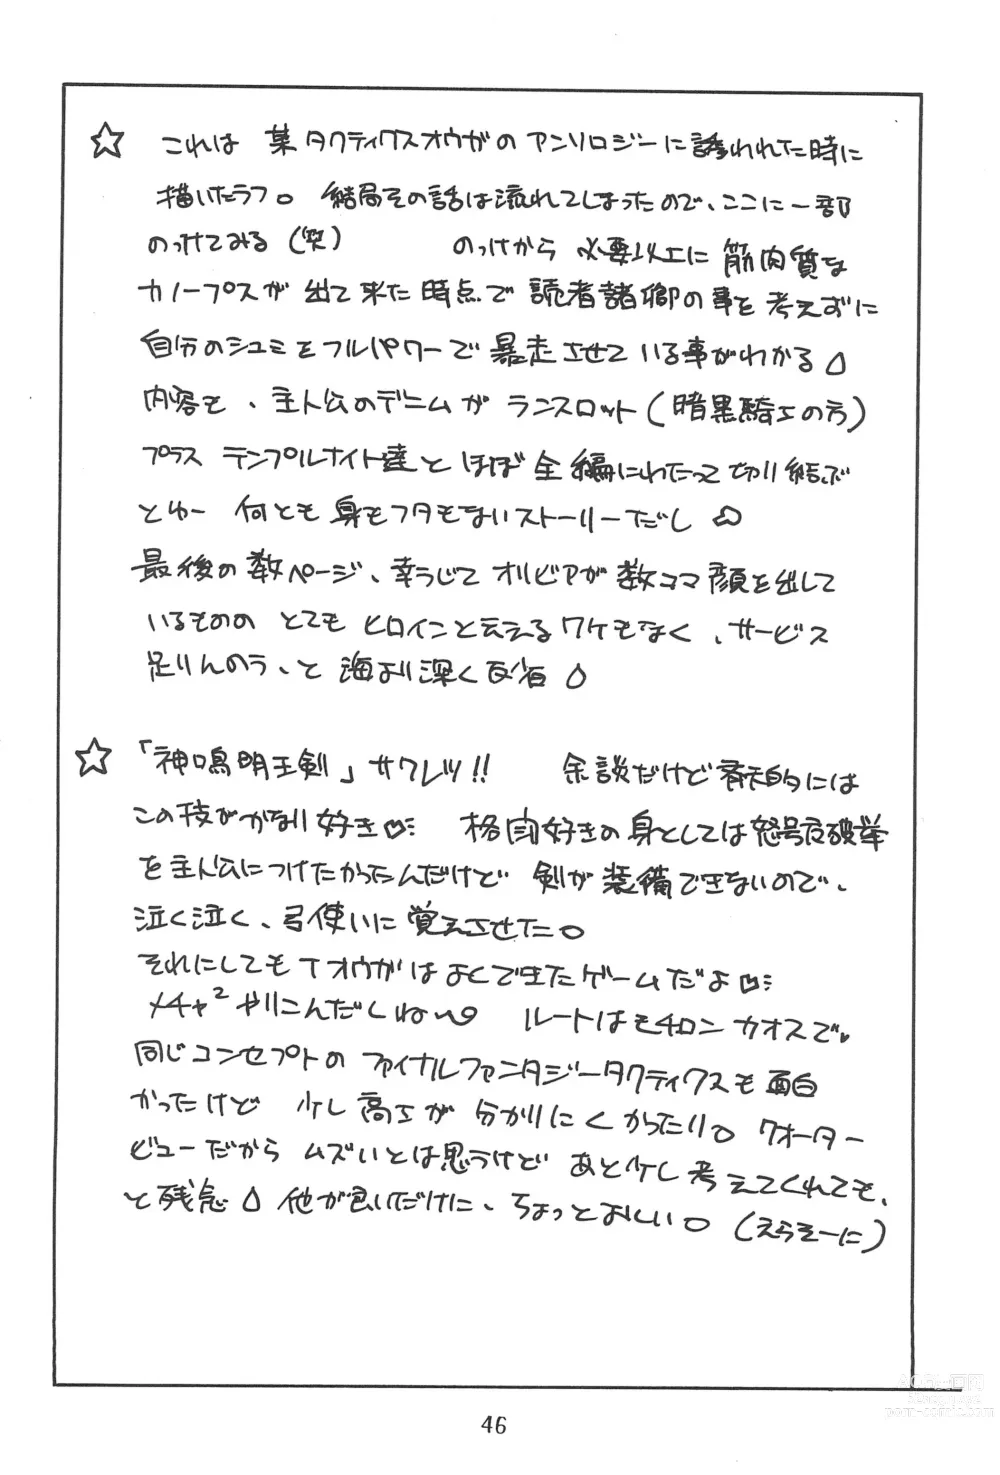 ☆ これは 某タクティクスオウガの アンソロジーに誘われた時に
描いたラフ。 結局その話は流れてしまったので、ここに一部
のっけてみる(笑) のっけから 必要以上に 筋肉質な
カノープスが 出て来た時点で 読者諸卿の事を考えずに
自分のシュミをフルパワーで暴走させている事がわかる
内容も、主人公のデニムが ランスロット(暗黒騎士の方)
プラス テンプルナイト達と ほぼ全編にわたって切り結ぶ
とゆー 何とも身もフタもないストーリーだし
最後の数ページ、辛うじて オリビアが数コマ顔を出して
いるものの とてもヒロインと云えるワケもなく、サービス
足りんのう、と海より深く反省
☆ 「神鳴明王剣」サクレツ!! 余談だけど 的には
この技がかなり好き♡ 格闘好きの身としては怒号 破拳
を主人公につけたかったんだけど 剣が装備できないので、
泣く泣く、弓使いに覚えさせた。
それにしてもTオウガはよくできたゲームだよ♡
メチャ²やりこんだしね〜 ルートはモチロン カオスで♥
同じコンセプトの ファイナルファンタジータクティクスも面白
かったけど 少し高さが 分かりにくかったり。 クォーター
ビューだから ムズいとは思うけど あと少し考えてくれても、
と残念 他が良いだけに、ちょっとおしい。 (えらそーに)
46